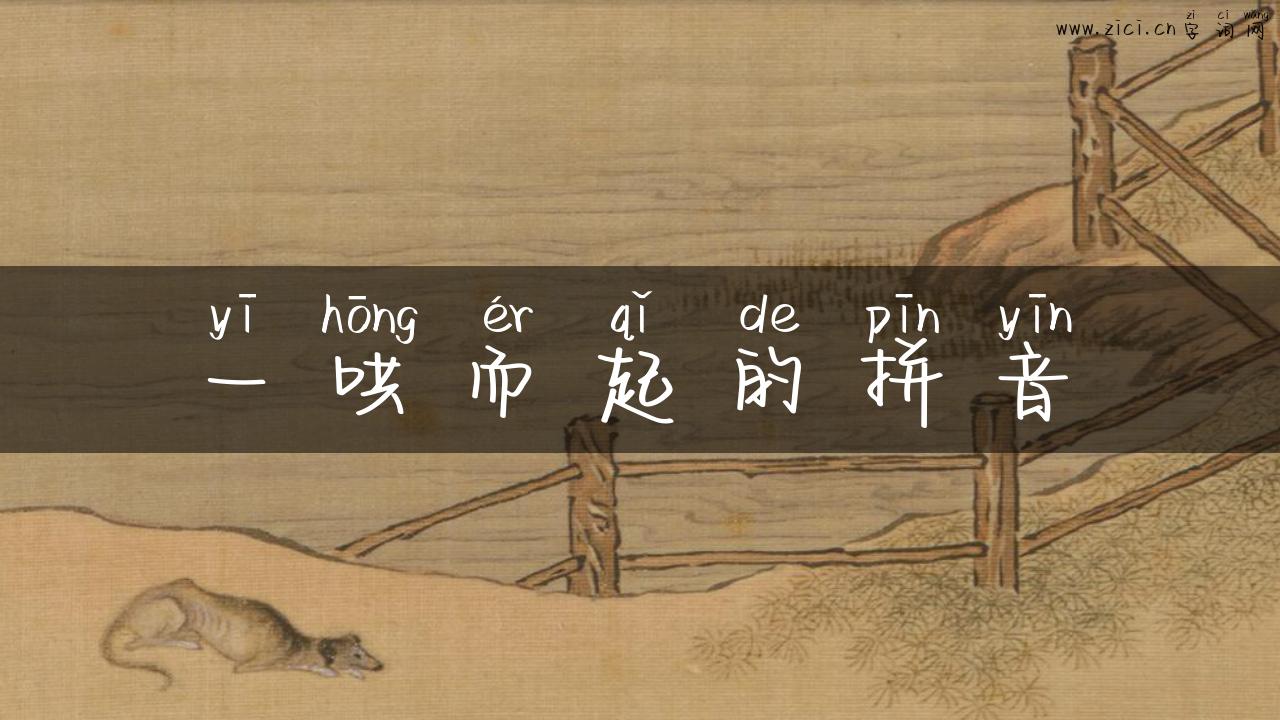 zi ci wang
www.zici.cn 字词网
yī hōng ér qǐ de pīn yīn
一哄而起的拼音